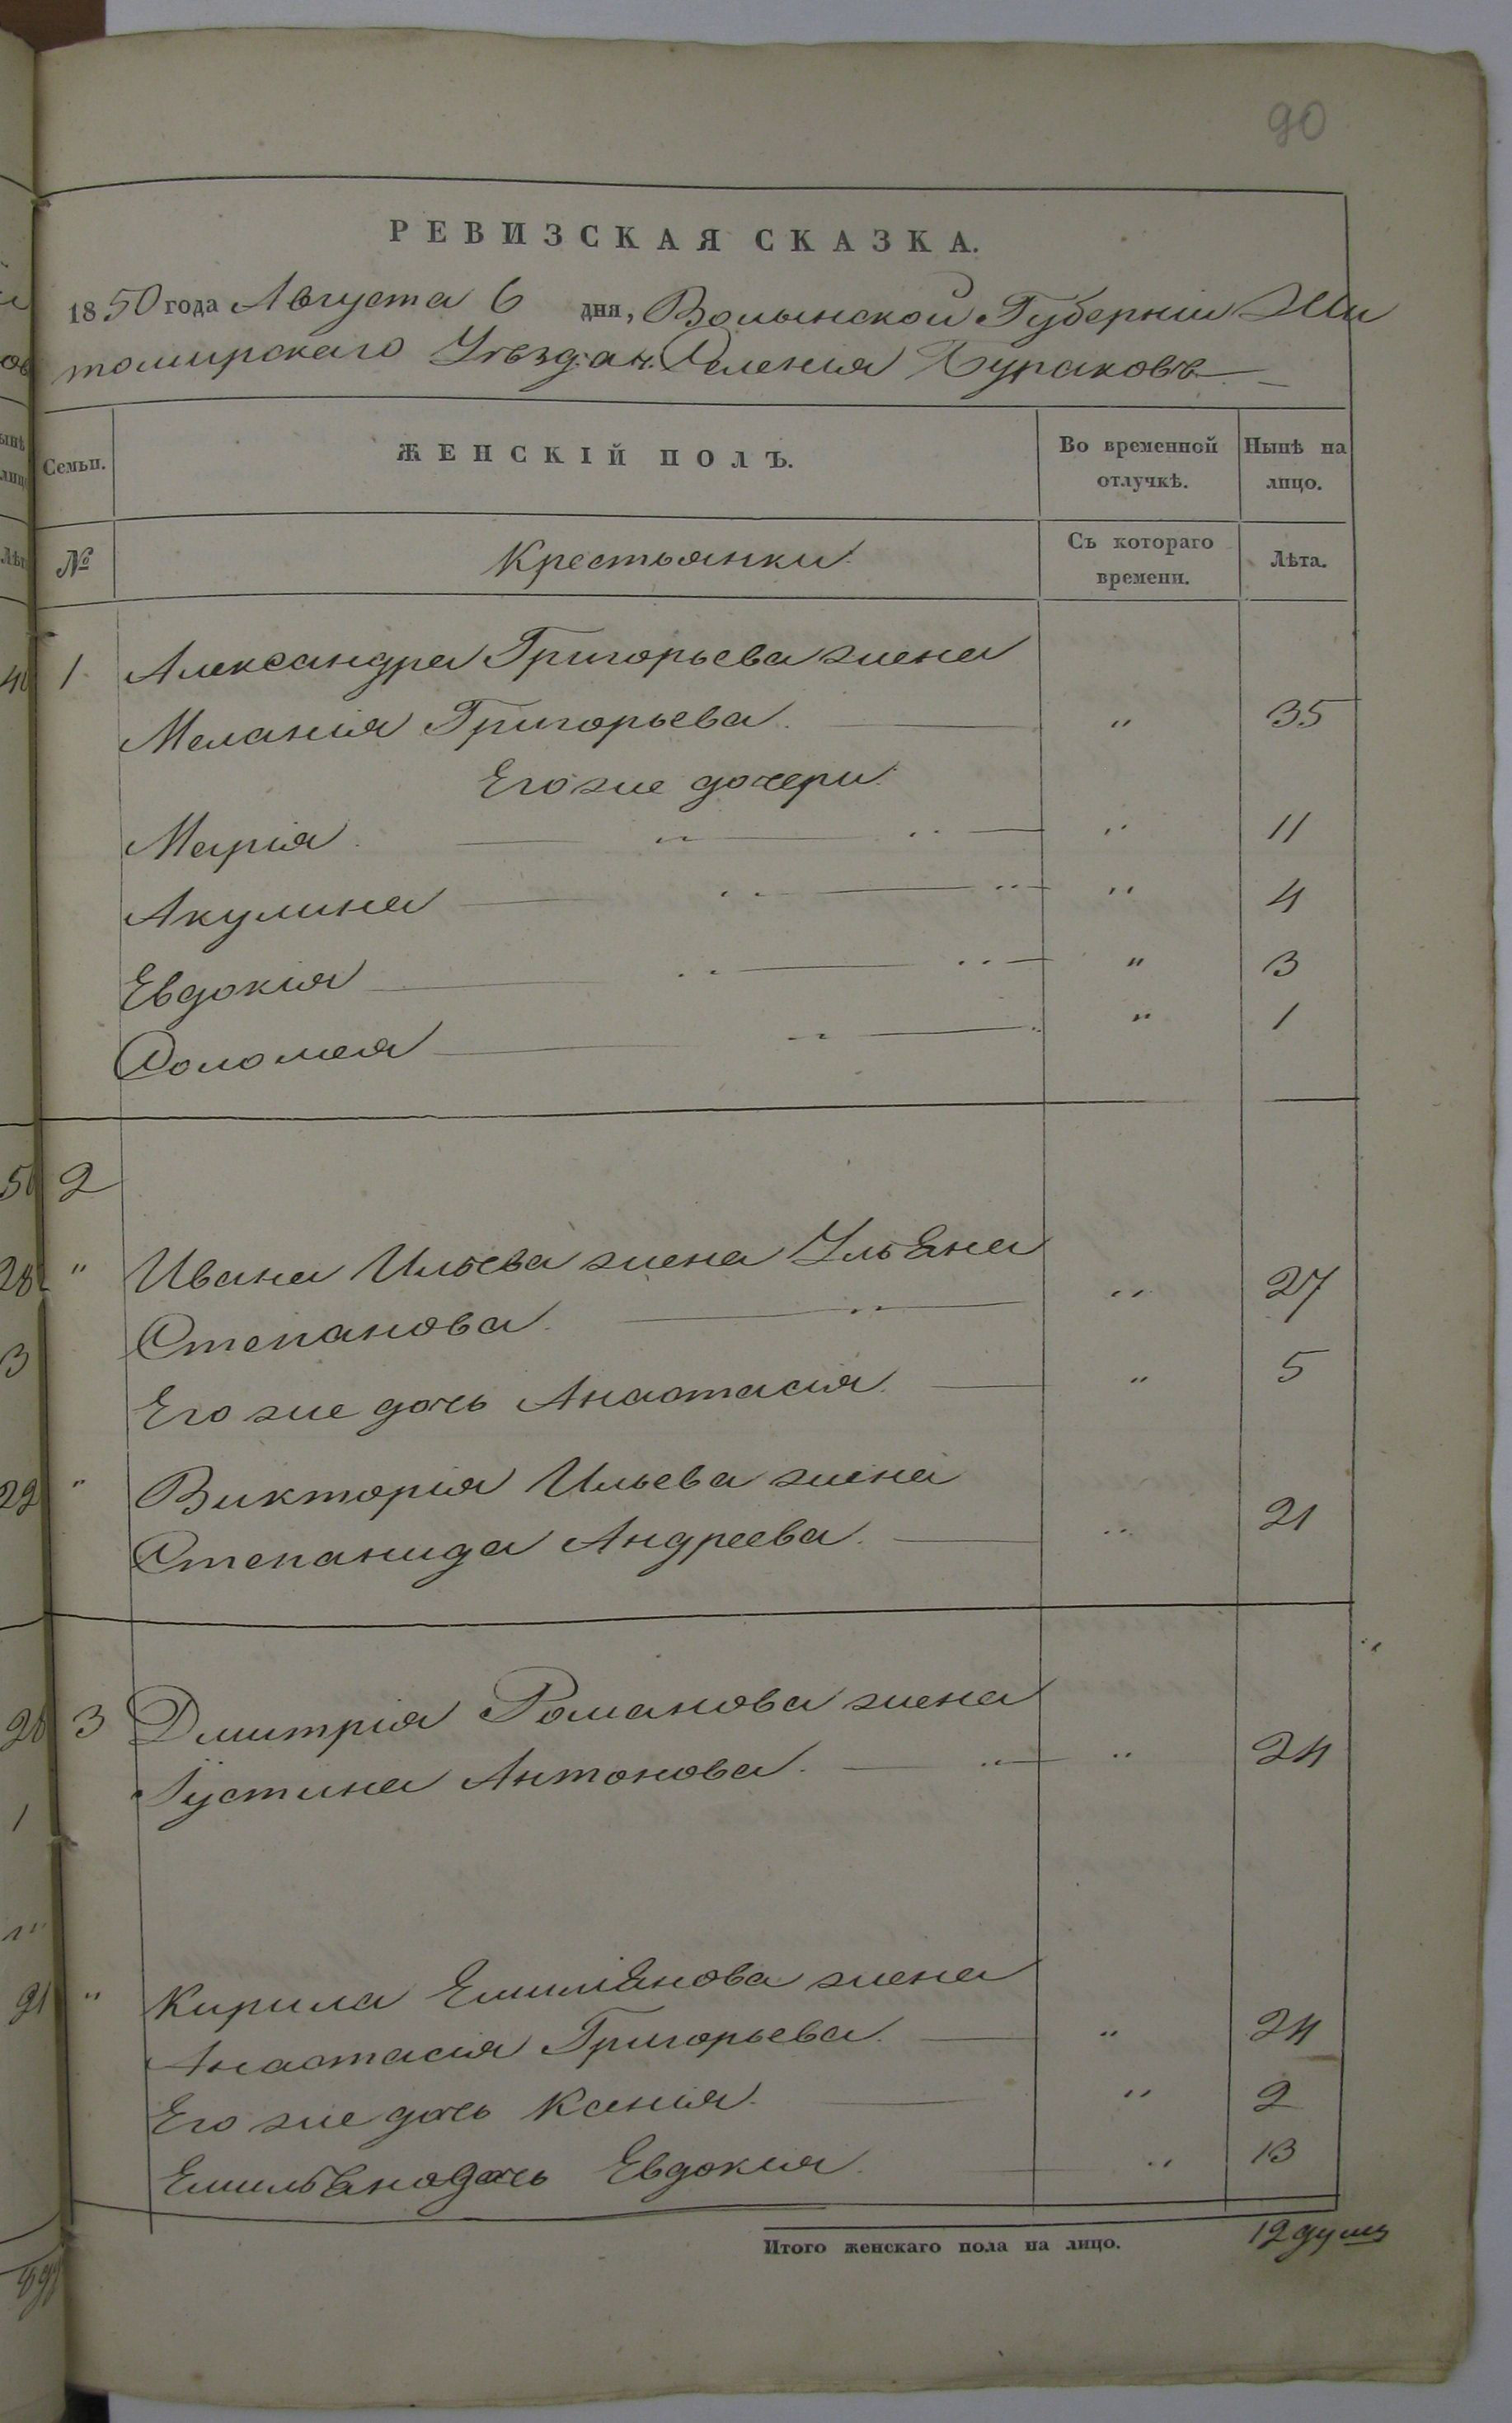 90
РЕВИЗСКАЯ СКАЗКА.
1850 года Августа 6 дня, Волынской Губерніи Жи
томирскаго Уѣзда Селенія Бураковъ
Семьи. ЖЕНСКІЙ ПОЛЪ. Во временной отлучкѣ. Нынѣ на лицо.
№ Крестьянки Съ котораго времени. Лѣта.
1 Александра Григорьева жена
Меланія Григорьева. — " 35
Его же дочери
Марія — " — " — " 11
Акулина — " — " — " 4
Евдокія — " — " — " 3
Соломея — " — " " 1
2
" Ивана Ильева жена Ульяна
Степанова. — " — " 27
Его же дочь Анастасія. — " 5
" Викторія Ильева жена
Степанида Андреева. — " 21
3 Дмитрія Романова жена
Іустина Антонова. — " — " 24
" Кирила Емиліянова жена
Анастасія Григорьева. — " 24
Его же дочь Ксенія. — " 2
дочь Евдокія. — " 13
Итого женскаго пола на лицо. 12 душъ